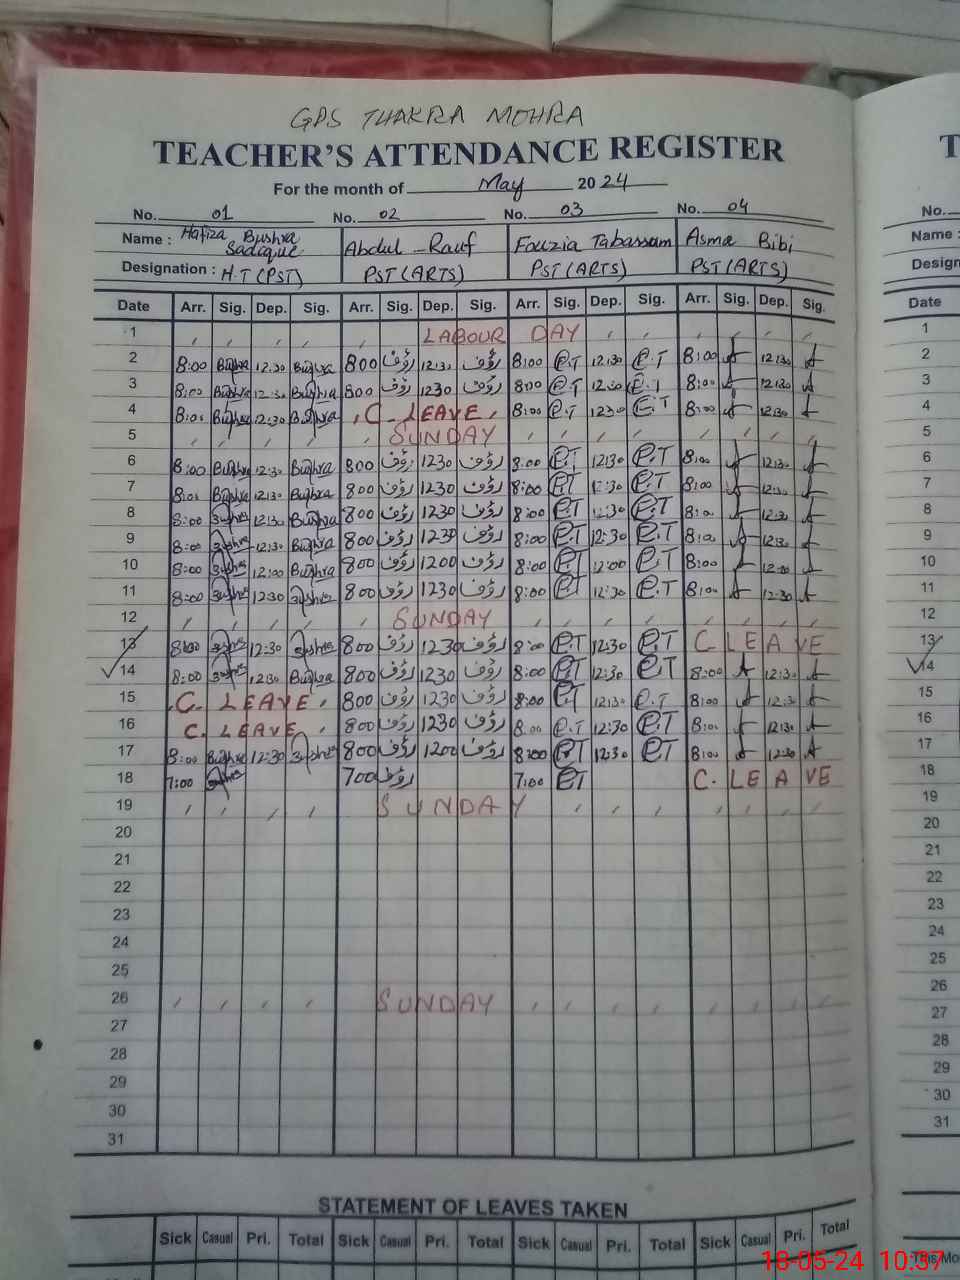 GPS THAKRA MOHRA
TEACHER'S ATTENDANCE REGISTER
For the month of May 2024
No. 01 No. 02 No. 03 No. 04
Name : Hafiza Bushra Sadique Abdul Rauf Fouzia Tabassam Asma Bibi
Designation : H.T (PST) PST (ARTS) PST (ARTS) PST (ARTS)
Date Arr. Sig. Dep. Sig. Arr. Sig. Dep. Sig. Arr. Sig. Dep. Sig. Arr. Sig. Dep. Sig.
1 LABOUR DAY
2 8:00 Bushra 12:30 Bushra 800 رؤف 1230 رؤف 8:00 F.T 12:30 F.T 8:00 A 12:30 A
3 8:00 Bushra 12:30 Bushra 800 رؤف 1230 رؤف 8:00 F.T 12:30 F.T 8:00 A 12:30 A
4 8:00 Bushra 12:30 Bushra C. LEAVE 8:00 F.T 1230 F.T 8:00 A 12:30 A
5 SUNDAY
6 8:00 Bushra 12:30 Bushra 800 رؤف 1230 رؤف 8:00 F.T 12:30 F.T 8:00 A 12:30 A
7 8:00 Bushra 12:30 Bushra 800 رؤف 1230 رؤف 8:00 F.T 12:30 F.T 8:00 A 12:30 A
8 8:00 Bushra 12:30 Bushra 800 رؤف 1230 رؤف 8:00 F.T 12:30 F.T 8:00 A 12:30 A
9 8:00 Bushra 12:30 Bushra 800 رؤف 1230 رؤف 8:00 F.T 12:30 F.T 8:00 A 12:30 A
10 8:00 Bushra 12:00 Bushra 800 رؤف 1200 رؤف 8:00 F.T 12:00 F.T 8:00 A 12:00 A
11 8:00 Bushra 12:30 Bushra 800 رؤف 1230 رؤف 8:00 F.T 12:30 F.T 8:00 A 12:30 A
12 SUNDAY
13 8:00 Bushra 12:30 Bushra 800 رؤف 1230 رؤف 8:00 F.T 12:30 F.T C LEAVE
14 8:00 Bushra 12:30 Bushra 800 رؤف 1230 رؤف 8:00 F.T 12:30 F.T 8:00 A 12:30 A
15 C. LEAVE 800 رؤف 1230 رؤف 8:00 F.T 12:30 F.T 8:00 A 12:30 A
16 C. LEAVE 800 رؤف 1230 رؤف 8:00 F.T 12:30 F.T 8:00 A 12:30 A
17 8:00 Bushra 12:30 Bushra 800 رؤف 1200 رؤف 8:00 F.T 12:30 F.T 8:00 A 12:30 A
18 7:00 Bushra 700 رؤف 7:00 F.T C. LEAVE
19 SUNDAY
20
21
22
23
24
25
26 SUNDAY
27
28
29
30
31
STATEMENT OF LEAVES TAKEN
Sick Casual Pri. Total Sick Casual Pri. Total Sick Casual Pri. Total Sick Casual Pri. Total
T
No.
Name :
Design
Date
1
2
3
4
5
6
7
8
9
10
11
12
13
14
15
16
17
18
19
20
21
22
23
24
25
26
27
28
29
30
31
This Mo
18-05-24 10:37